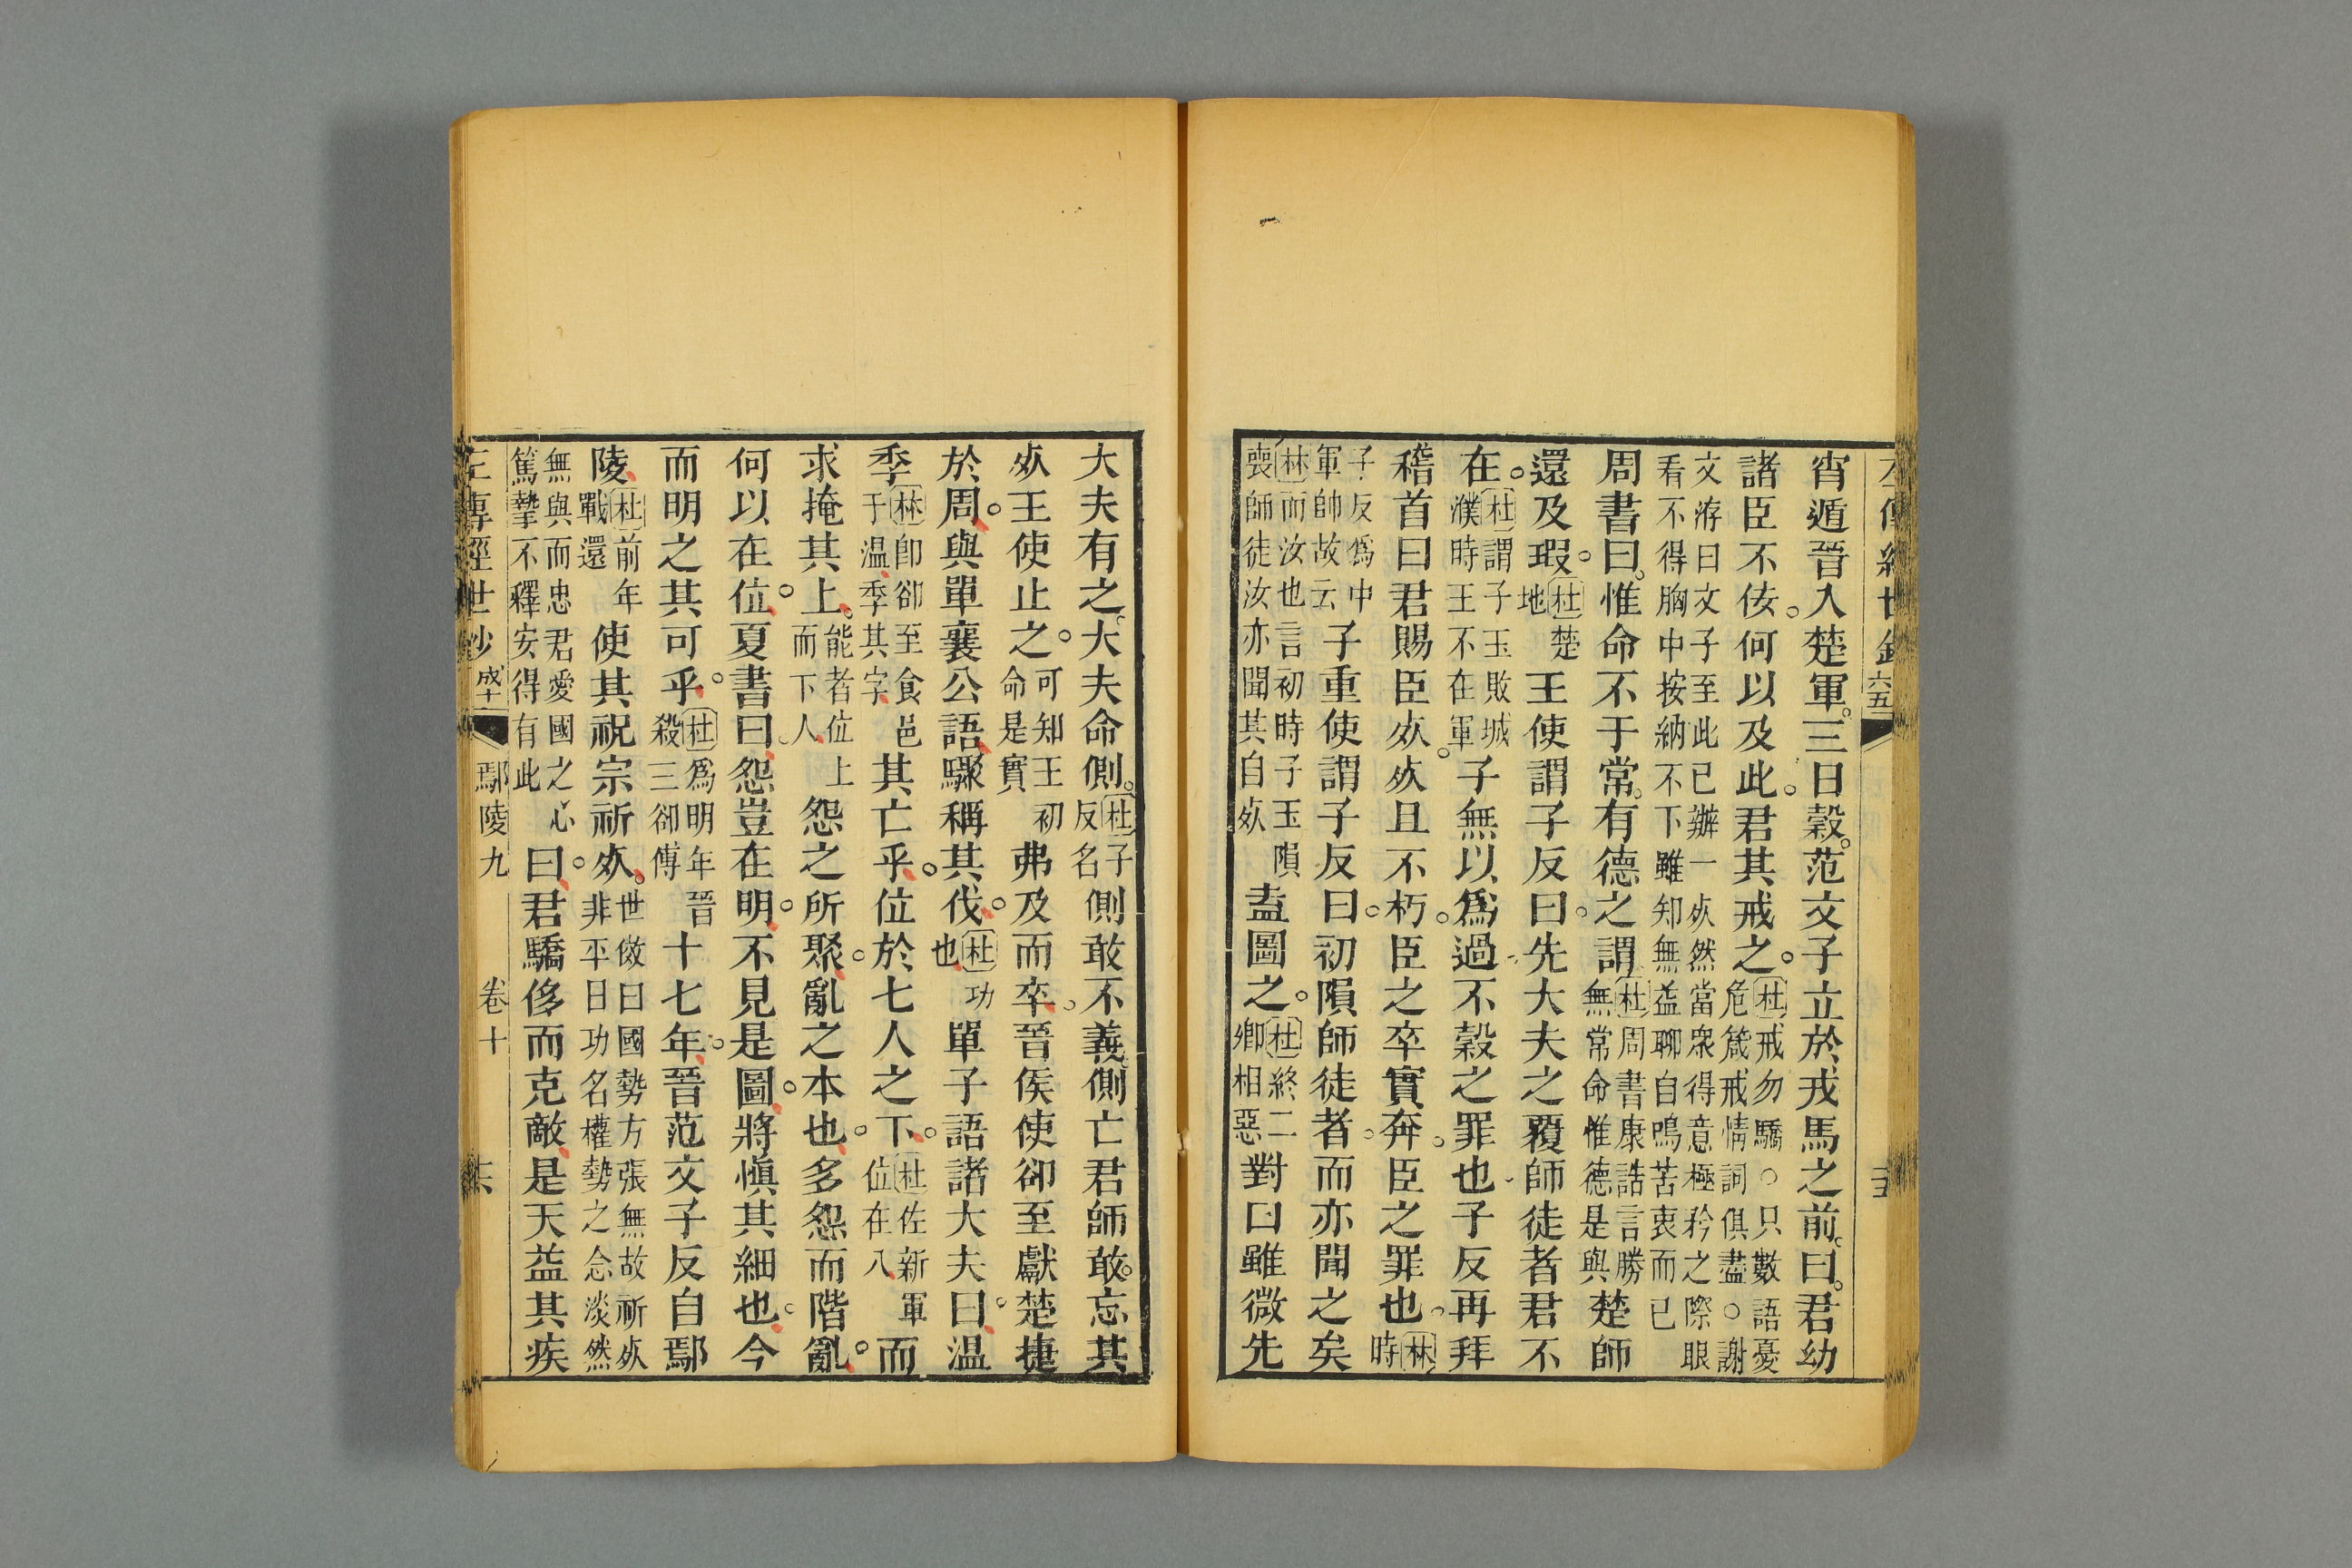 左傳經世鈔
六五
宵遁晉入楚軍三日穀范文子立於戎馬之前曰君幼
諸臣不佞何以及此君其戒之杜戒勿驕○只數語憂危箴戒情詞俱盡○謝
文洊曰文子至此已辦一𣦸然當衆得意極矜之際眼看不得胸中按納不下雖知無益聊自鳴苦衷而已
周書曰惟命不于常有德之謂杜周書康誥言勝無常命惟德是與楚師
還及瑕杜楚地王使謂子反曰先大夫之覆師徒者君不
在杜謂子玉敗城濮時王不在軍子無以爲過不穀之罪也子反再拜
稽首曰君賜臣𣦸𣦸且不朽臣之卒實奔臣之罪也林時
子反爲中軍帥故云子重使謂子反曰初隕師徒者而亦聞之矣
林而汝也言初時子玉隕喪師徒汝亦聞其自𣦸盍圖之杜終二卿相惡對曰雖微先
大夫有之大夫命側杜子反名側敢不義側亡君師敢忘其
𣦸王使止之可知王初命是實弗及而卒晉侯使卻至獻楚捷
於周與單襄公語驟稱其伐杜功也單子語諸大夫曰温
季林卽卻至食邑于温季其字其亡乎位於七人之下杜佐新軍位在八而
求掩其上能者位上而下人怨之所聚亂之本也多怨而階亂
何以在位夏書曰怨豈在明不見是圖將愼其細也今
而明之其可乎杜爲明年晉殺三卻傳十七年晉范文子反自鄢
陵杜前年戰還使其祝宗祈𣦸世傚曰國勢方張無故祈𣦸非平日功名權勢之念淡然
無與而忠君愛國之心篤摯不釋安得有此曰君驕侈而克敵是天益其疾
左傳經世鈔
鄢陵九
卷十